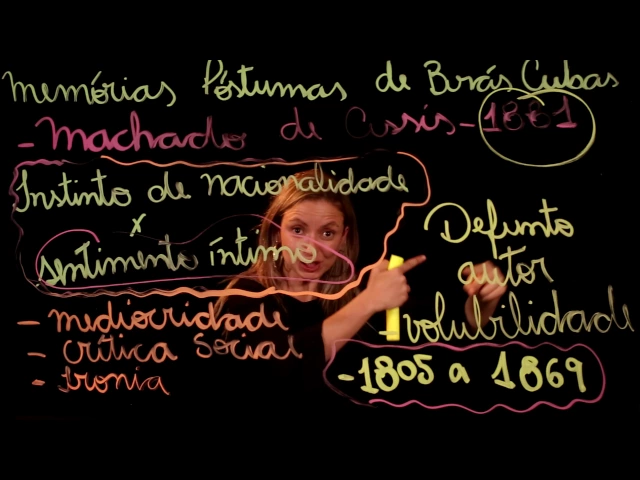 Memórias Póstumas de Brás Cubas
- Machado de Assis - 1881
Instinto de nacionalidade
x
sentimento íntimo
- mediocridade
- crítica social
- Ironia
Defunto
autor
- volubilidade
- 1805 a 1869